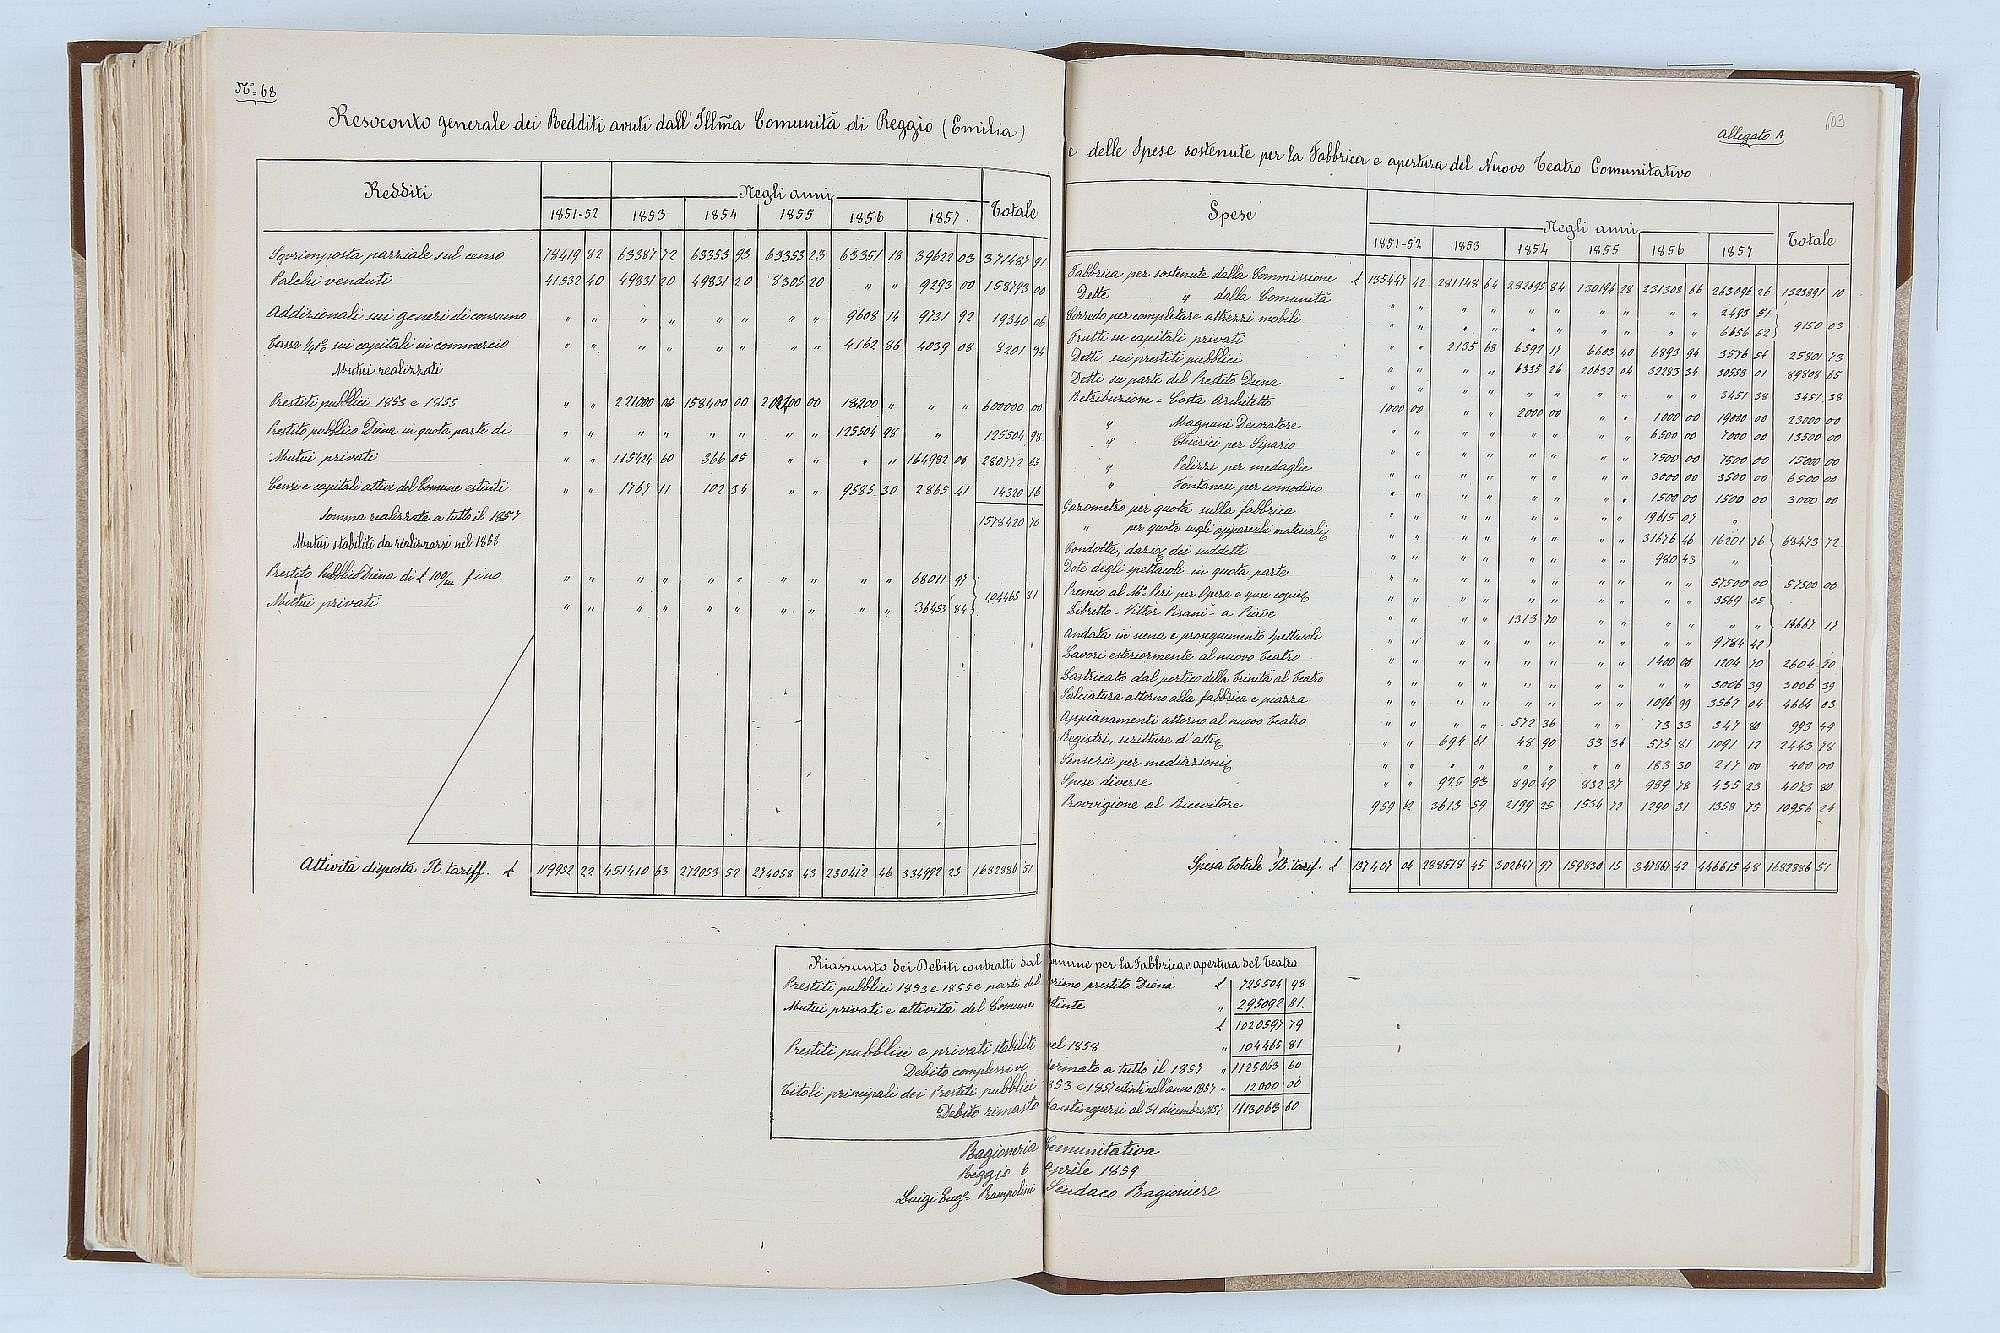 Nº 68
Resoconto generale dei Redditi avuti dall'Illma Comunità di Reggio (Emilia)
Redditi Negli anni Totale
1851-52 1853 1854 1855 1856 1857
Sovrimposta parziale sul censo 78419 82 63387 72 63353 93 63353 23 63351 18 39622 03 371487 91
Palchi venduti 41532 40 49831 20 49831 20 8305 20 " " 9293 00 158793 00
Addizionali sui generi di consumo " " " " " " " " 9608 14 9731 92 19340 06
Tassa sui capitali in commercio " " " " " " " " 4162 86 4039 08 8201 94
Mutui realizzati
Prestiti pubblici 1853 e 1855 " " 221000 00 158400 00 00 18200 " " " 600000 00
Prestito pubblico Diena in quota parte di " " " " " " " " 125504 98 " 125504 98
Mutui privati " " 115424 60 366 05 " " " " 164982 00 280772 63
Censi e capitali attivi del Comune estinti " " 1767 11 102 34 " " 9585 30 2865 41 14320 16
Somma realizzata a tutto il 1857 1578420 70
Mutui stabiliti da realizzarsi nel 1858
Prestito Pubblico Diena di £ 100/m fino " " " " " " " " " " 68011 97
104465 81
Mutui privati " " " " " " " " " " 36453 84
Attività disposta It. tariff. £ 119952 22 451410 63 272053 52 274058 43 230412 46 334992 25 1682886 51
Allegato A
103
e delle Spese sostenute per la Fabbrica e apertura del Nuovo Teatro Comunitativo
Spese Negli anni Totale
1851-52 1853 1854 1855 1856 1857
Fabbrica per sostenute dalla Commissione £ 135447 42 281148 64 282695 84 130196 28 231308 66 263096 26 1323891 10
Dette " dalla Comunità " " " " " " " " " " 2493 51
9150 03
Corredo per completare attrezzi mobili " " " " " " " " " " 6656 62
Frutti in capitali privati " " 2135 68 6592 17 6603 40 6893 94 3576 54 25801 73
Detti sui prestiti pubblici " " " " 6335 26 20632 04 32283 34 30553 01 89808 65
Detti su parte del Prestito Diena " " " " " " " " " " 3451 38 3451 38
Retribuzione - Costa Architetto 1000 00 " " 2000 00 " " 1000 00 19000 00 23000 00
" Magnani Decoratore " " " " " " " " 6500 00 7000 00 13500 00
" Chierici per Sipario " " " " " " " " 7500 00 7500 00 15000 00
" Pelizzi per medaglie " " " " " " " " 3000 00 3500 00 6500 00
" Fontanesi per comodino " " " " " " " " 1500 00 1500 00 3000 00
Gazometro per quota sulla fabbrica " " " " " " " " 19615 07 "
" per quota sugli apparecchi materiali " " " " " " " " 31676 46 16201 76 68473 72
Condotte, dazi dei suddetti " " " " " " " " 980 43 "
Dote degli spettacoli in quota parte " " " " " " " " " " 57500 00 57500 00
Premio al Mº Peri per Opera e spese copie " " " " " " " " " " 3569 05
Libretto - Vittor Pisani - a Piave " " " " 1313 70 " " " " " " 14667 17
Andata in scena e proseguimento Spettacoli " " " " " " " " " " 9784 42
Lavori esteriormente al nuovo Teatro " " " " " " " " 1400 00 1204 70 2604 70
Lastricato dal portico della Trinità al Teatro " " " " " " " " " " 3006 39 3006 39
Salciatura attorno alla fabbrica e piazza " " " " " " " " 1096 99 3567 04 4664 03
Appianamenti attorno al nuovo Teatro " " " " 572 36 " " 73 33 347 80 993 49
Registri, scritture d'atti " " 694 61 48 90 33 34 575 81 1091 12 2443 78
Senserie per mediazioni " " " " " " " " 183 30 217 00 400 00
Spese diverse " " 925 93 890 49 832 37 989 78 435 23 4073 80
Provvigione al Ricevitore 959 62 3613 59 2199 25 1534 72 1290 31 1358 75 10956 24
Spesa Totale It. tarif. £ 137407 04 288518 45 302647 97 159830 15 347867 42 446615 48 1682886 51
Riassunto dei Debiti contratti dal Comune per la Fabbrica e apertura del Teatro
Prestiti pubblici 1853 e 1855 e parte del primo prestito Diena £ 725504 98
Mutui privati e attività del Comune estinte " 295092 81
£ 1020597 79
Prestiti pubblici e privati stabiliti nel 1858 " 104465 81
Debito complessivo formato a tutto il 1857 " 1125063 60
Titoli principali dei Prestiti pubblici 1853 e 1857 estinti nell'anno 1857 " 12000 00
Debito rimasto da estinguersi al 31 dicembre 1857 1113063 60
Ragioneria Comunitativa
Reggio 6 Aprile 1859
Luigi Eugº Rampolini Sindaco Ragioniere